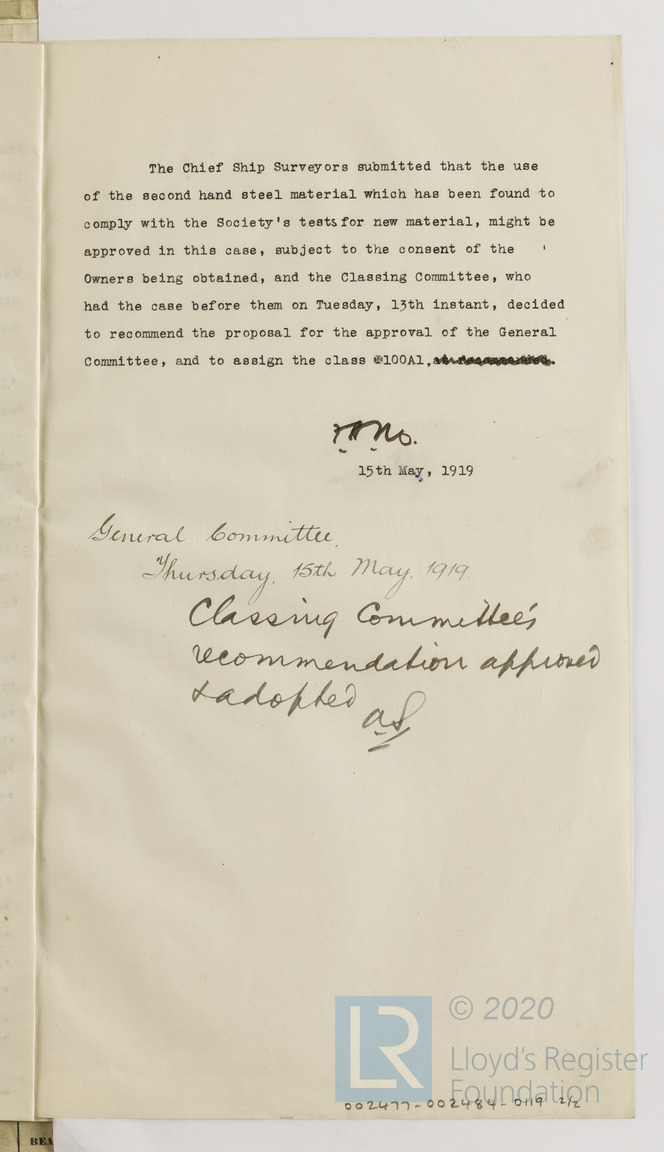 The Chief Ship Surveyors submitted that the use
of the second hand steel material which has been found to
comply with the Society's tests for new material, might be
approved in this case, subject to the consent of the
Owners being obtained, and the Classing Committee, who
had the case before them on Tuesday, 13th instant, decided
to recommend the proposal for the approval of the General
Committee, and to assign the class ✠100A1,
15th May, 1919
General Committee,
Thursday, 15th May, 1919.
Classing Committee's
recommendation approved
& adopted
AS
LR
© 2020
Lloyd's Register
Foundation
002477-002484-0119 2/2
BEA